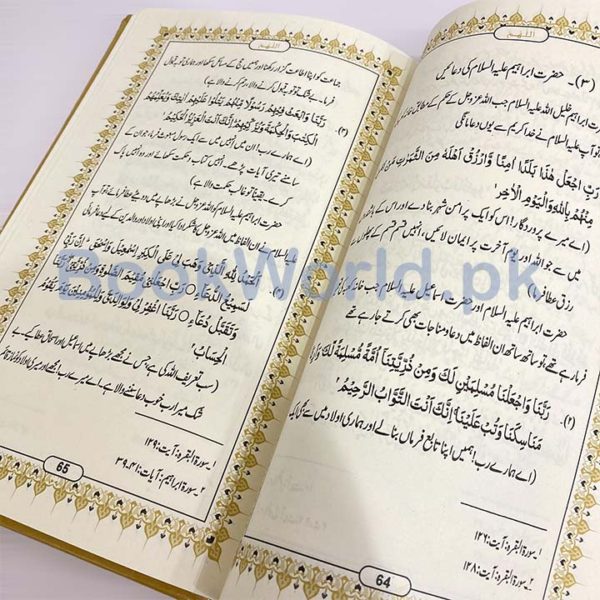 اللّٰہم
(۳)۔ حضرت ابراہیم علیہ السلام کی دعائیں
حضرت ابراہیم خلیل اللہ علیہ السلام جب اللہ عزوجل کے حکم کے مطابق
تو آپ علیہ السلام نے خدا کریم سے یوں دعا مانگی
رَبِّ اجْعَلْ هٰذَا بَلَدًا اٰمِنًا وَّارْزُقْ اَهْلَهٗ مِنَ الثَّمَرٰتِ مَنْ
مِنْهُمْ بِاللّٰهِ وَالْيَوْمِ الْاٰخِرِ ۱
(اے میرے پروردگار! اس کو ایک پر امن شہر بنا دے اور اس کے
میں سے جو اللہ اور یوم آخرت پر ایمان لائیں، انہیں قسم قسم کے پھلوں
رزق عطا فرما)
حضرت ابراہیم علیہ السلام اور حضرت اسماعیل علیہ السلام جب خانہ
فرما رہے تھے تو ساتھ ساتھ ان الفاظ میں دعا و مناجات بھی کرتے جا رہے تھے
(۲)۔ رَبَّنَا وَاجْعَلْنَا مُسْلِمَيْنِ لَكَ وَمِنْ ذُرِّيَّتِنَا اُمَّةً مُّسْلِمَةً لَّكَ وَاَرِنَا
مَنَاسِكَنَا وَتُبْ عَلَيْنَا اِنَّكَ اَنْتَ التَّوَّابُ الرَّحِيْمُ ۲
(اے ہمارے رب! ہمیں اپنا تابع فرماں بنا لے اور ہماری اولاد میں سے بھی ایک
۱۔ سورۃ البقرہ: آیت: ۱۲۶
۲۔ سورۃ البقرہ: آیت: ۱۲۸
64
اللّٰہم
جماعت کو اپنا اطاعت گزار رکھنا اور ہمیں حج کے مسائل سکھا اور ہماری توبہ قبول
فرما۔ بے شک تو توبہ قبول کرنے والا، رحم کرنے والا ہے)
(۳)۔ رَبَّنَا وَابْعَثْ فِيْهِمْ رَسُوْلًا مِّنْهُمْ يَتْلُوْا عَلَيْهِمْ اٰيٰتِكَ وَيُعَلِّمُهُمُ
الْكِتٰبَ وَالْحِكْمَةَ وَيُزَكِّيْهِمْ اِنَّكَ اَنْتَ الْعَزِيْزُ الْحَكِيْمُ ۱
(اے ہمارے رب! ان میں انہیں میں سے ایک رسول مبعوث فرما، جو ان کے
سامنے تیری آیات پڑھے۔ انہیں کتاب و حکمت سکھائے اور وہ انہیں پاک
کرے۔ یقیناً تو غالب حکمت والا ہے)
حضرت ابراہیم علیہ السلام کو اللہ عزوجل نے بڑھاپے میں بیٹے عطا فرمائے تو آپ
علیہ السلام نے ان الفاظ میں اللہ عزوجل کا شکر ادا کیا اور اپنی اولاد اور والدین کے لیے دعا فرمائی
(۴)۔ اَلْحَمْدُ لِلّٰهِ الَّذِيْ وَهَبَ لِيْ عَلَى الْكِبَرِ اِسْمٰعِيْلَ وَاِسْحٰقَ اِنَّ رَبِّيْ
لَسَمِيْعُ الدُّعَآءِ ○ رَبِّ اجْعَلْنِيْ مُقِيْمَ الصَّلٰوةِ وَمِنْ ذُرِّيَّتِيْ رَبَّنَا
وَتَقَبَّلْ دُعَآءِ ○ رَبَّنَا اغْفِرْ لِيْ وَلِوَالِدَيَّ وَلِلْمُؤْمِنِيْنَ يَوْمَ يَقُوْمُ
الْحِسَابُ ۲
(سب تعریف اللہ کی ہے، جس نے مجھے بڑھاپے میں اسماعیل اور اسحاق عطا کیے۔ بے
شک میرا رب خوب دعا سننے والا ہے، اے میرے رب! مجھے اور میری اولاد کو نماز قائم
۱۔ سورۃ البقرہ: آیت: ۱۲۹
۲۔ سورۃ ابراہیم: آیات: ۳۹۔۴۱
65
BookWorld.pk